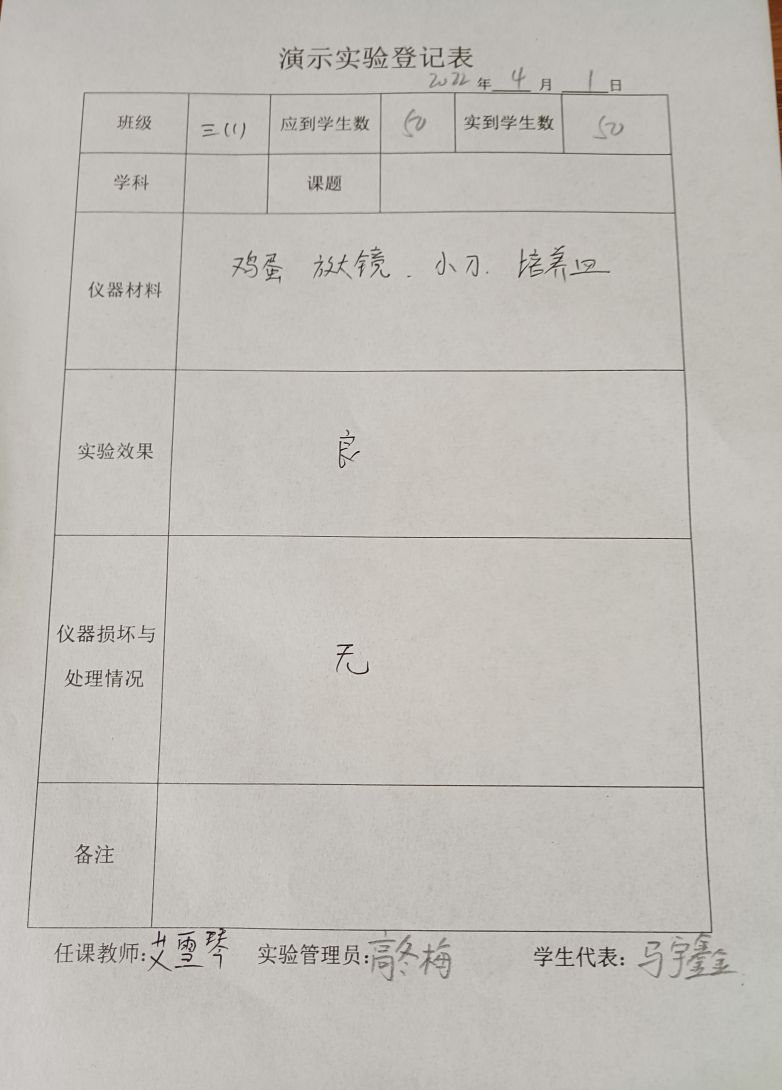 演示实验登记表
2022年 4 月 1 日
班级 三(1) 应到学生数 50 实到学生数 50
学科 课题
仪器材料 鸡蛋 放大镜、小刀、培养皿
实验效果 良
仪器损坏与
处理情况 无
备注
任课教师:艾雪琴 实验管理员:高冬梅 学生代表:马宇鑫